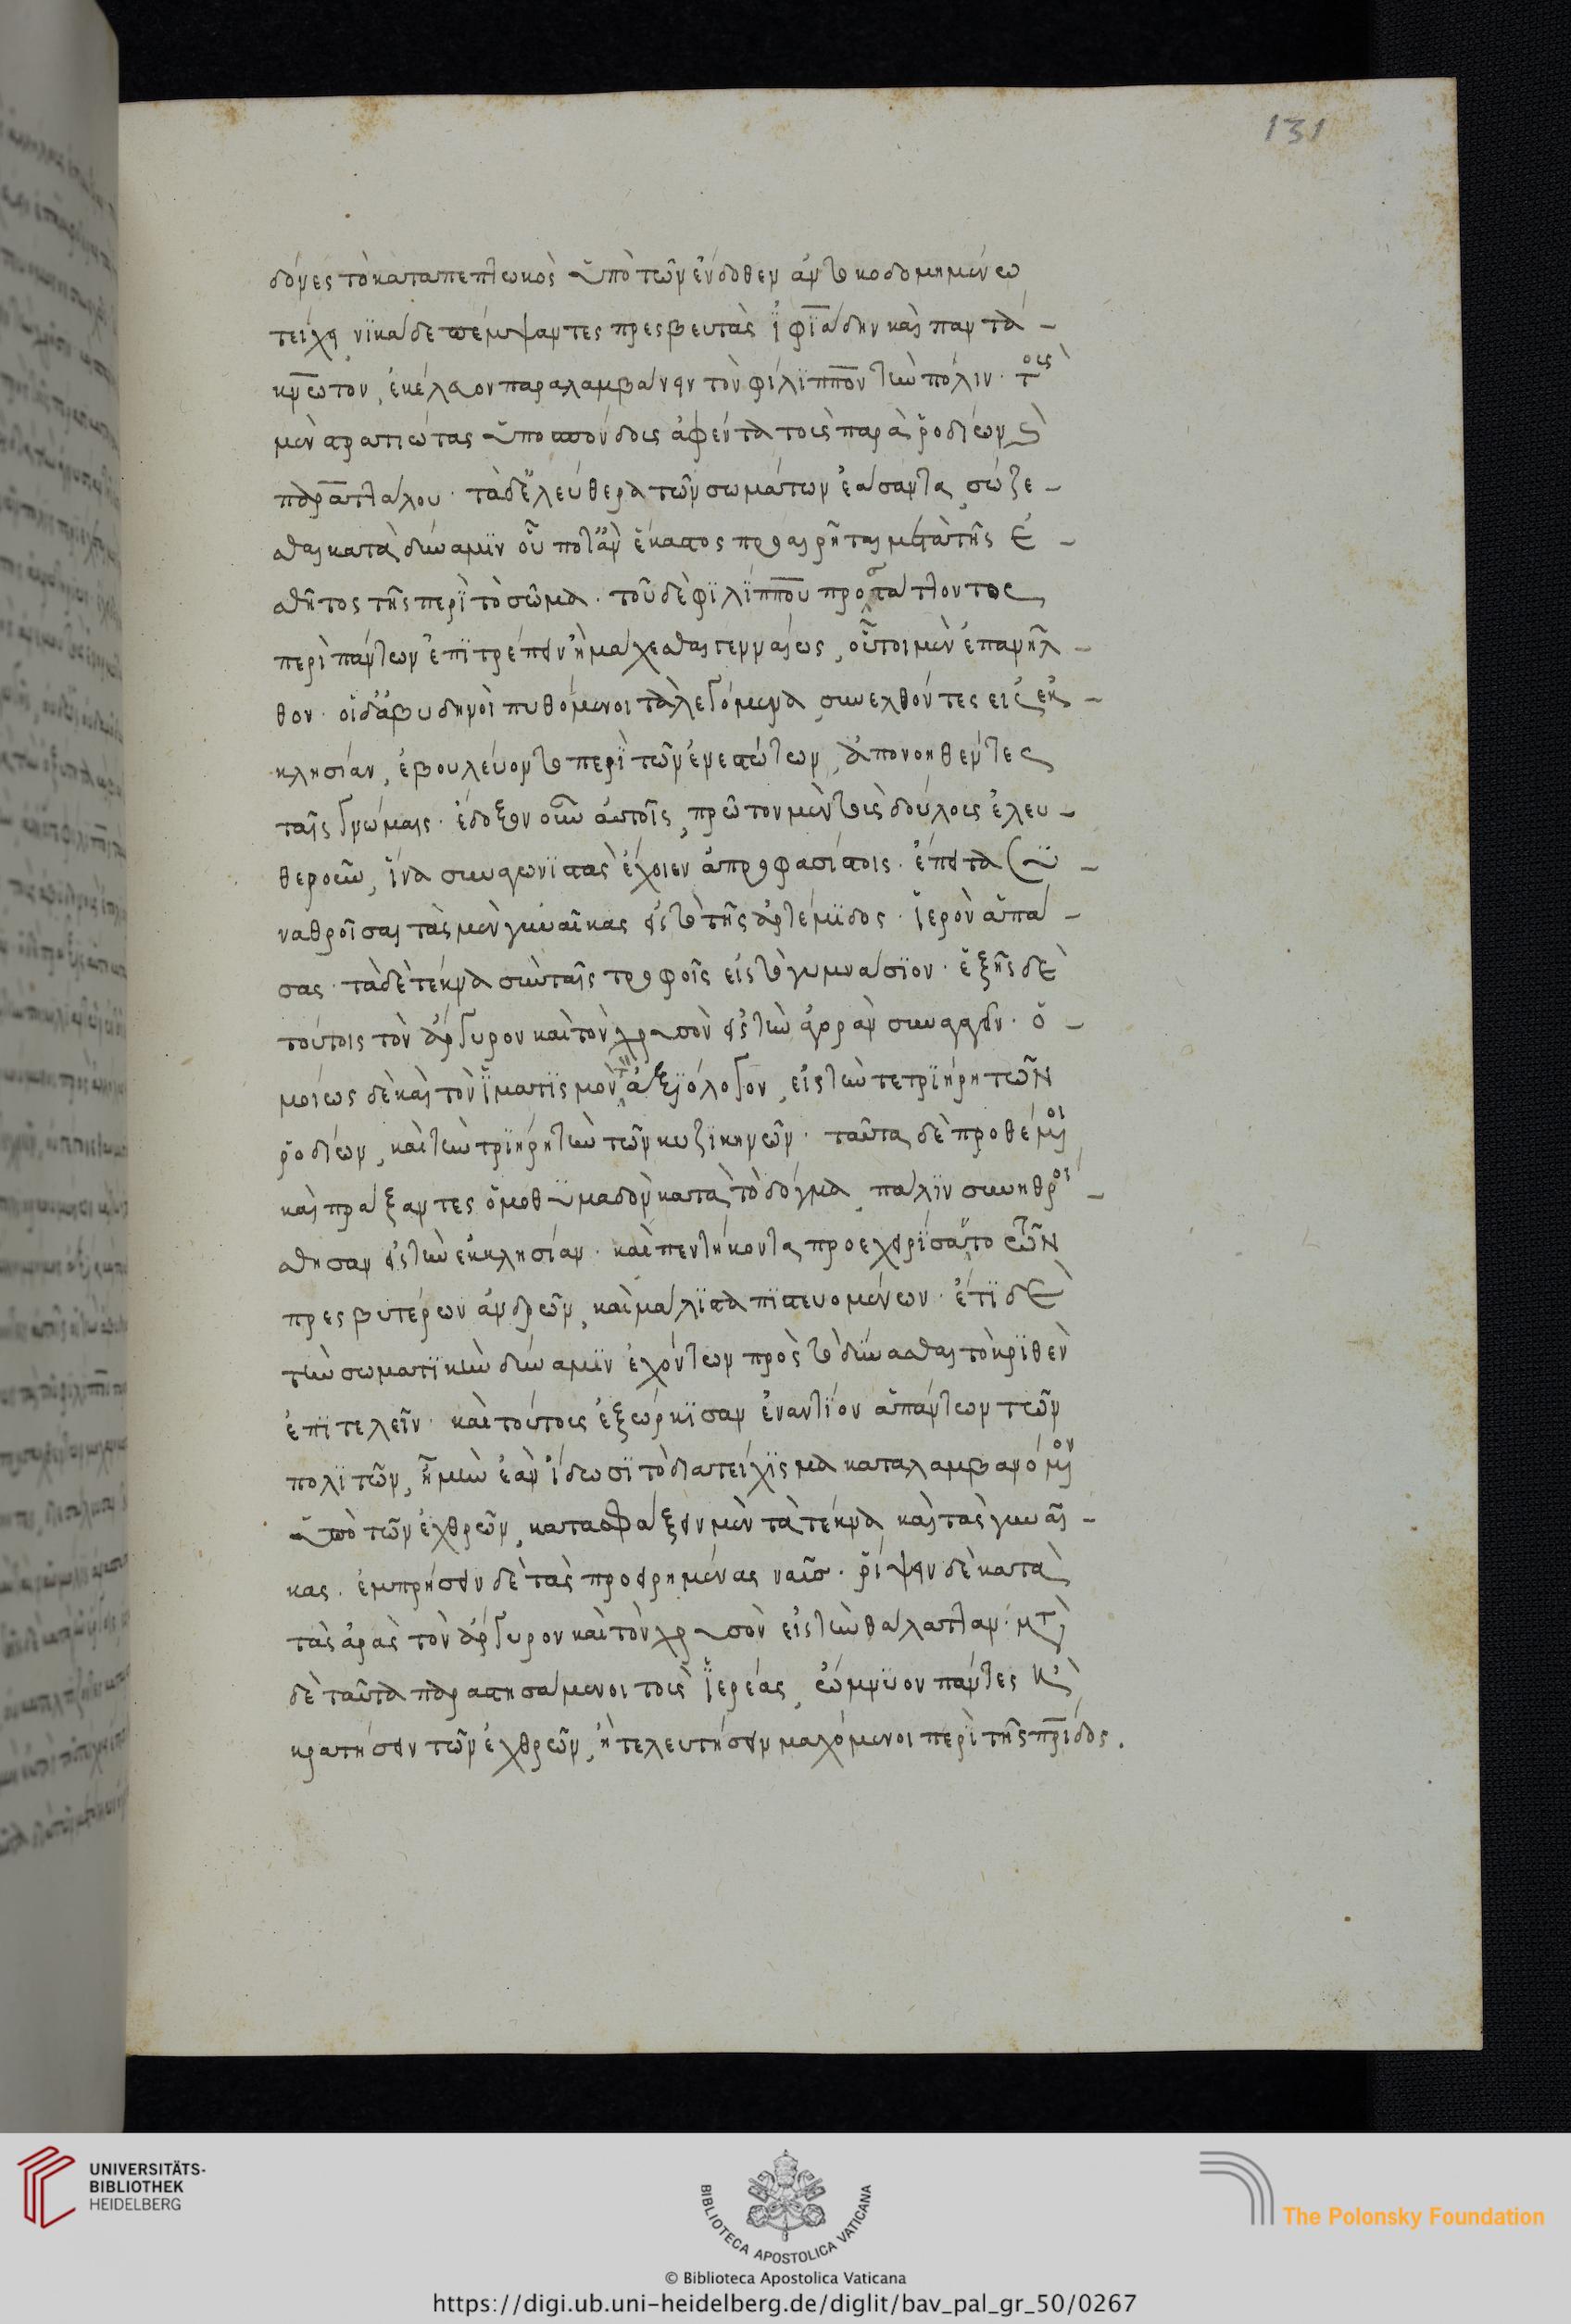 δόνες τὸ καταπεπτωκὸς ὑπὸ τῶν ἔνδοθεν ἀντοκοδομημένω
τείχει νϊκάδε πέμψαντες πρεσβευτὰς ϊφϊάδην καὶ παντά-
κνωτον, ἐκέλευον παραλαμβάνειν τὸν φίλϊππον τὴν πόλιν· τοὺς
μὲν στρατιώτας ὑποσπόνδους ἀφέντα τοὺς παρὰ ῥοδίων καὶ
παρὰ ττάλου· τὰ δ' ἐλεύθερα τῶν σωμάτων ἐάσαντα, σώζε-
σθαι κατὰ δύναμϊν οὗ ποτ' ἂν ἕκαστος προαιρῆται μετὰ τῆς ἐ-
σθῆτος τῆς περϊ τὸ σῶμα· τοῦ δὲ φϊλίππου προστάττοντος
περὶ πάντων ἐπϊτρέπειν ἢ μάχεσθαι γενναίως, οὗτοι μὲν ἐπανῆλ-
θον· οἱ δ' ἀβυδηνοὶ πυθόμενοι τὰ λεγόμενα, συνελθόντες εἰς ἐκ-
κλησίαν, ἐβουλεύοντο περὶ τῶν ἐνεστώτων, ἀπονοηθέντες
ταῖς γνώμαις· ἔδοξεν οὖν αὐτοῖς, πρῶτον μὲν τοὺς δούλους ἐλευ-
θεροῦν, ἵνα συναγωνϊστὰς ἔχοιεν ἀπροφασίστοις· ἔπειτα συ-
ναθροῖσαι τὰς μὲν γυναῖκας εἰς τὸ τῆς ἀρτέμϊδος· ϊερὸν ἁπά-
σας· τὰ δὲ τέκνα σὺν ταῖς τροφοῖς εἰς τὸ γυμνασϊον· ἑξῆς δὲ
τούτοις τὸν ἄργυρον καὶ τὸν χρυσὸν εἰς τὴν ἀγορὰν συναγαγεῖν· ὁ-
μοίως δὲ καὶ τὸν ϊματϊσμὸν τὸν ἀξϊόλογον, εἰς τὴν τετρϊήρη τῶν
ῥοδίων, καὶ τὴν τρϊήρη τὴν τῶν κυζϊκηνῶν· ταῦτα δὲ προθέμενοι
καὶ πράξαντες ὁμοθυμαδὸν κατὰ τὸ δόγμα, πάλϊν συνηθροί-
σθησαν εἰς τὴν ἐκκλησίαν· καὶ πεντήκοντα προεχειρίσαντο τῶν
πρεσβυτέρων ἀνδρῶν, καὶ μάλϊστα πϊστευομένων· ἔτϊ δὲ
τὴν σωματϊκὴν δύναμϊν ἐχόντων πρὸς τὸ δύνασθαι τὸ κρϊθὲν
ἐπϊτελεῖν· καὶ τούτους ἐξώρκϊσαν ἐναντϊόν ἁπάντων τῶν
πολϊτῶν, ἦ μὴν ἐὰν ἴδωσϊ τὸ διατείχϊσμα καταλαμβανόμενον
ὑπὸ τῶν ἐχθρῶν, κατασφάξειν μὲν τὰ τέκνα καὶ τὰς γυναῖ-
κας· ἐμπρήσειν δὲ τὰς προειρημένας ναῦσ· ῥίψειν δὲ κατὰ
τὰς ἀρὰς τὸν ἄργυρον καὶ τὸν χρυσὸν εἰς τὴν θάλατταν· μετὰ
δὲ ταῦτα παραστησάμενοι τοὺς ϊερέας, ὤμνυον πάντες ἢ
κρατήσειν τῶν ἐχθρῶν, ἢ τελευτήσειν μαχόμενοι περὶ τῆς πρίδος.
131
UNIVERSITÄTS-
BIBLIOTHEK
HEIDELBERG
BIBLIOTECA APOSTOLICA VATICANA
The Polonsky Foundation
© Biblioteca Apostolica Vaticana
https://digi.ub.uni-heidelberg.de/diglit/bav_pal_gr_50/0267